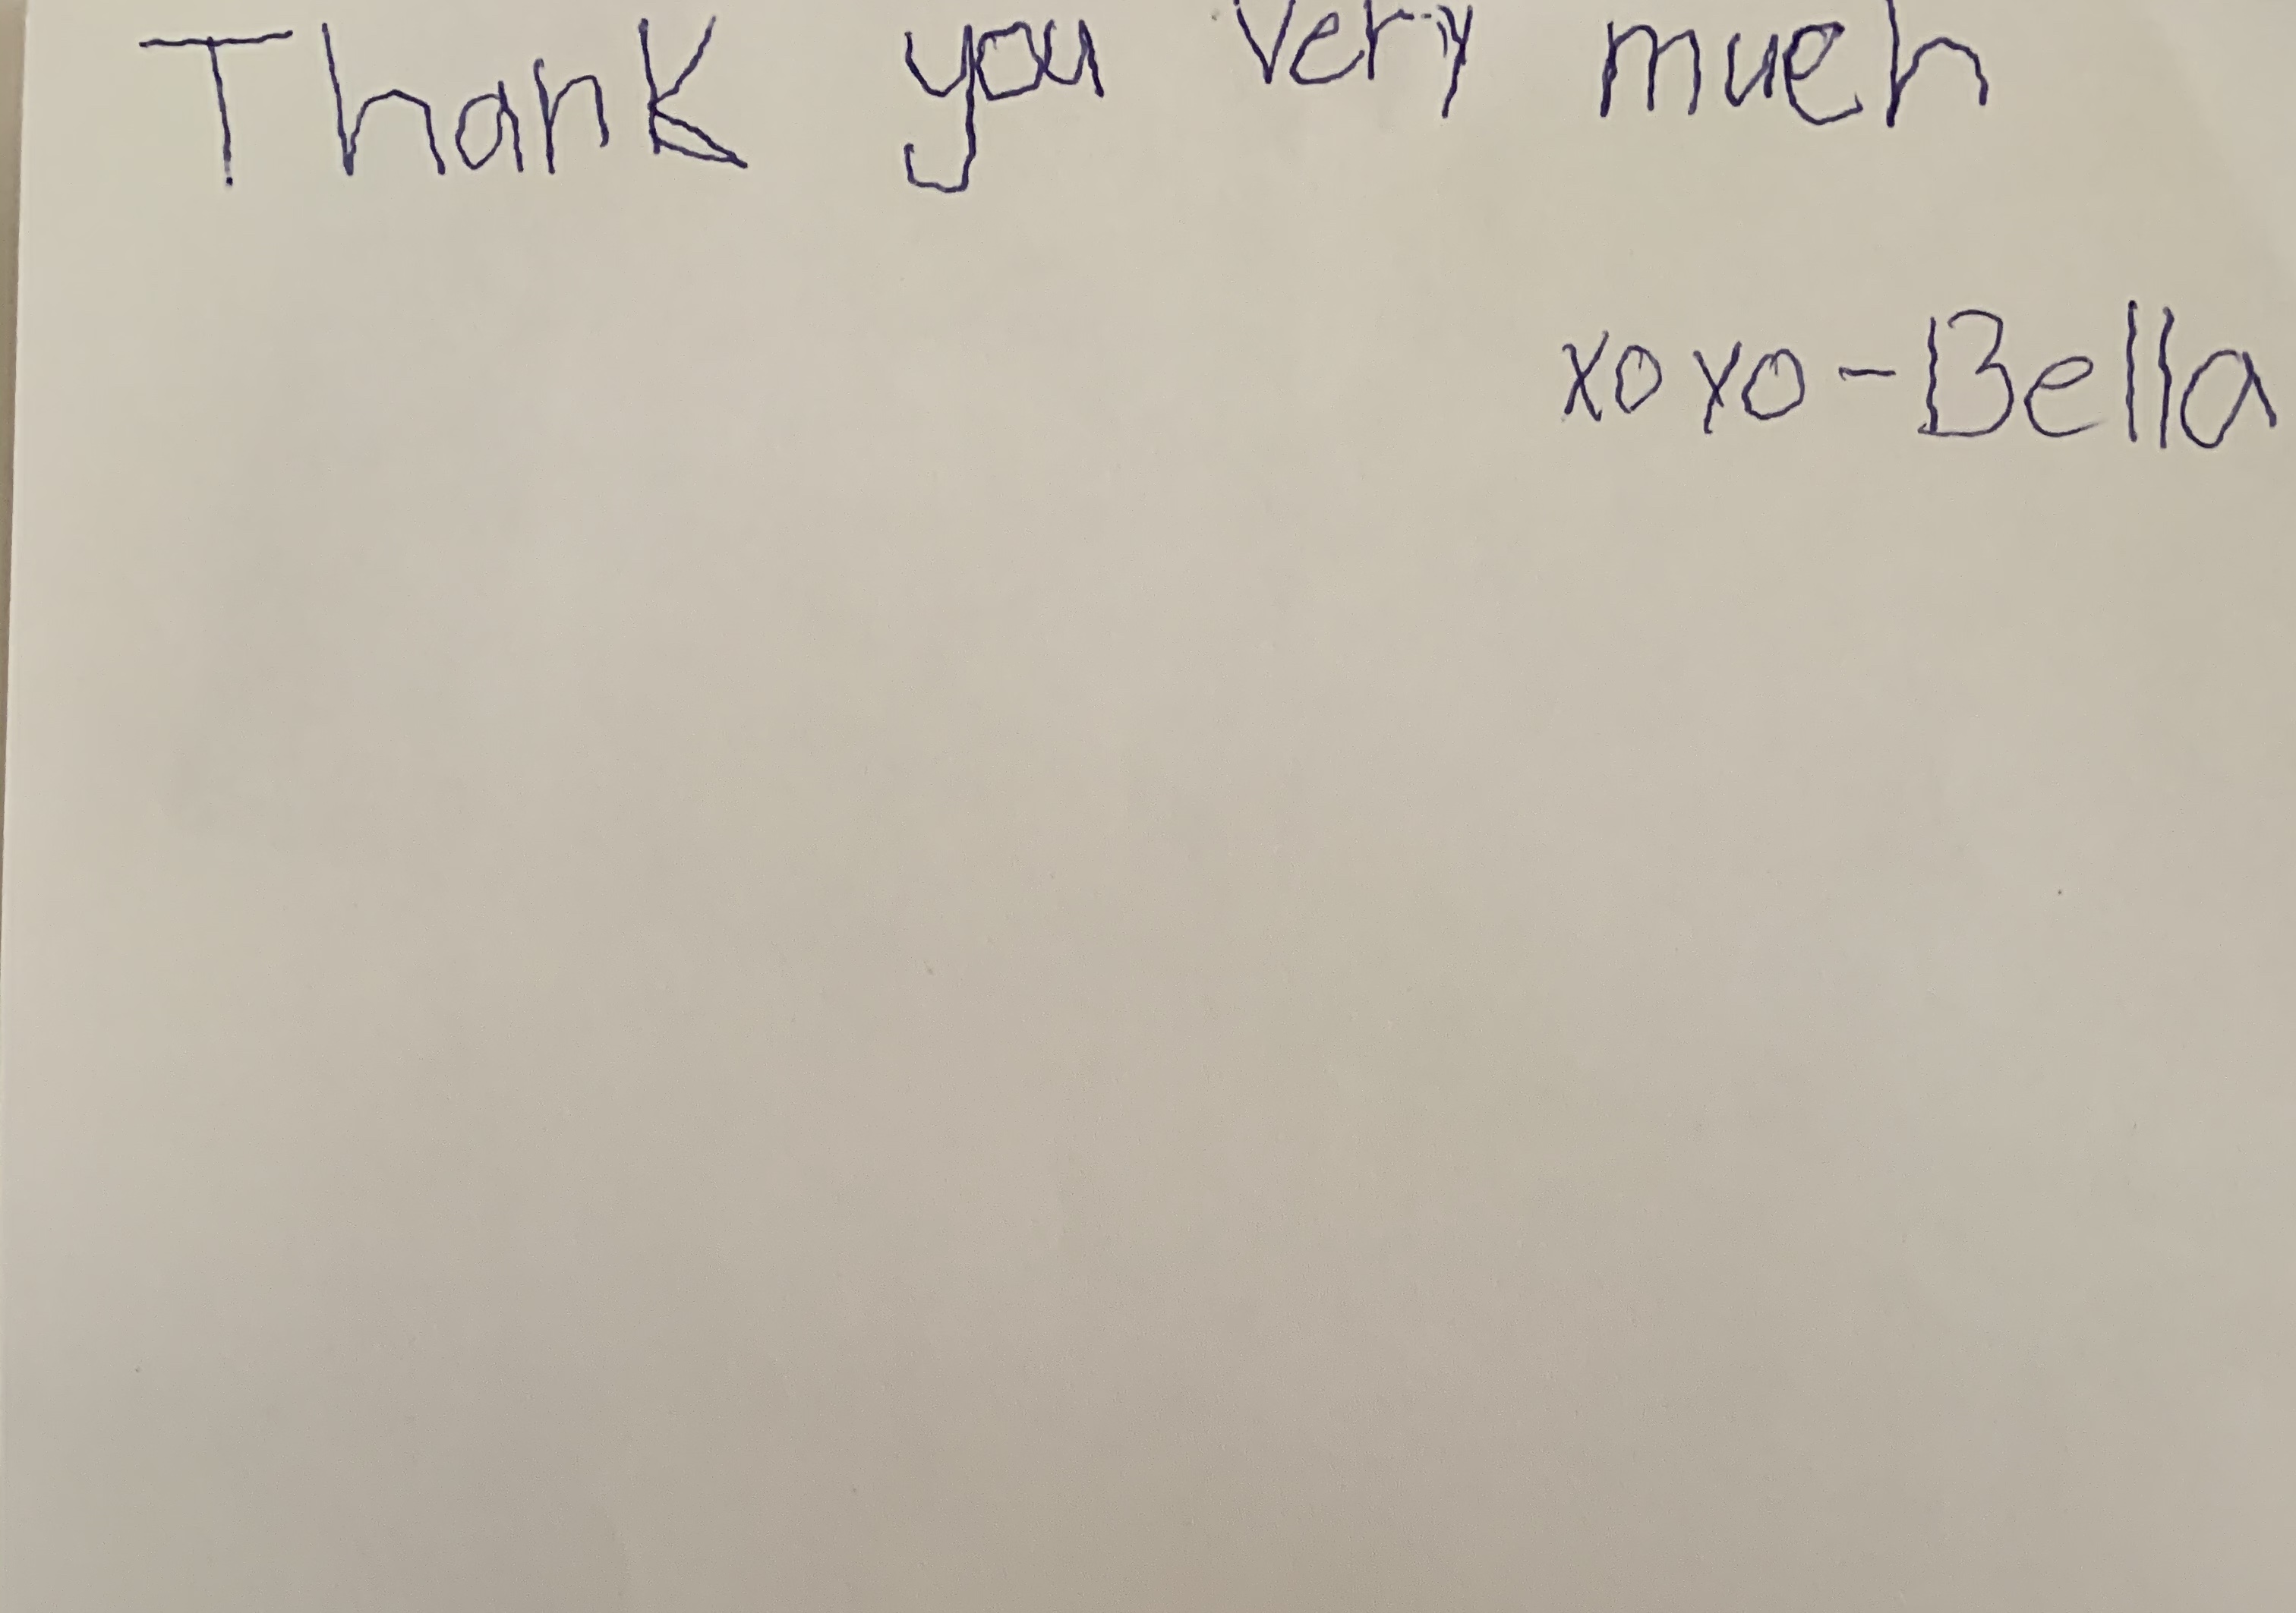 Thank you very much
xoxo-Bella